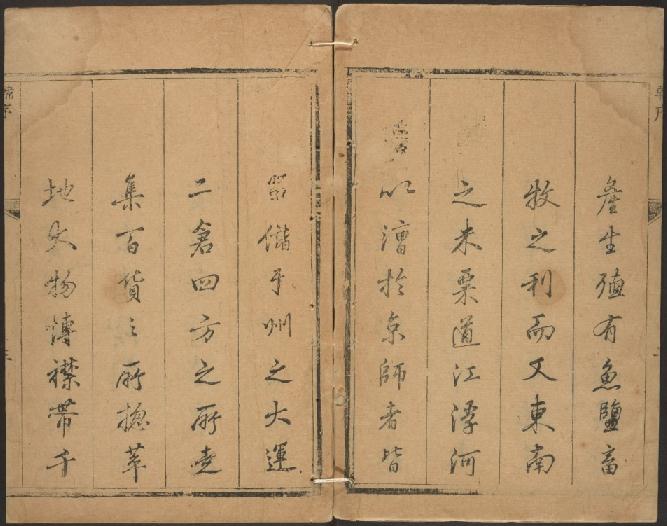 產生殖有魚鹽畜
牧之利而又東南
之米粟道江浮河
以漕於京師者皆
儲于州之大運
二倉四方之所走
集百貨之所揔萃
地大物博襟帶千